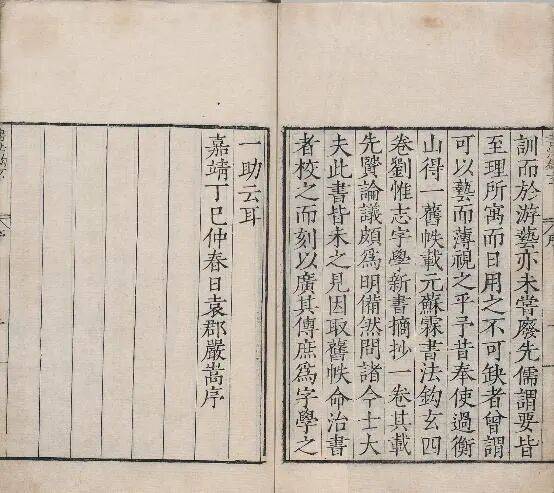 訓而於游藝亦未嘗廢先儒謂要皆
至理所寓而日用之不可缺者曾謂
可以藝而薄視之乎予昔奉使過衡
山得一舊帙載元蘇霖書法鈎玄四
卷劉惟志字學新書摘抄一卷其載
先贒論議頗為明備然問諸今士大
夫此書皆未之見因取舊帙命治書
者校之而刻以廣其傳庶為字學之
一助云耳
嘉靖丁巳仲春日袁郡嚴嵩序